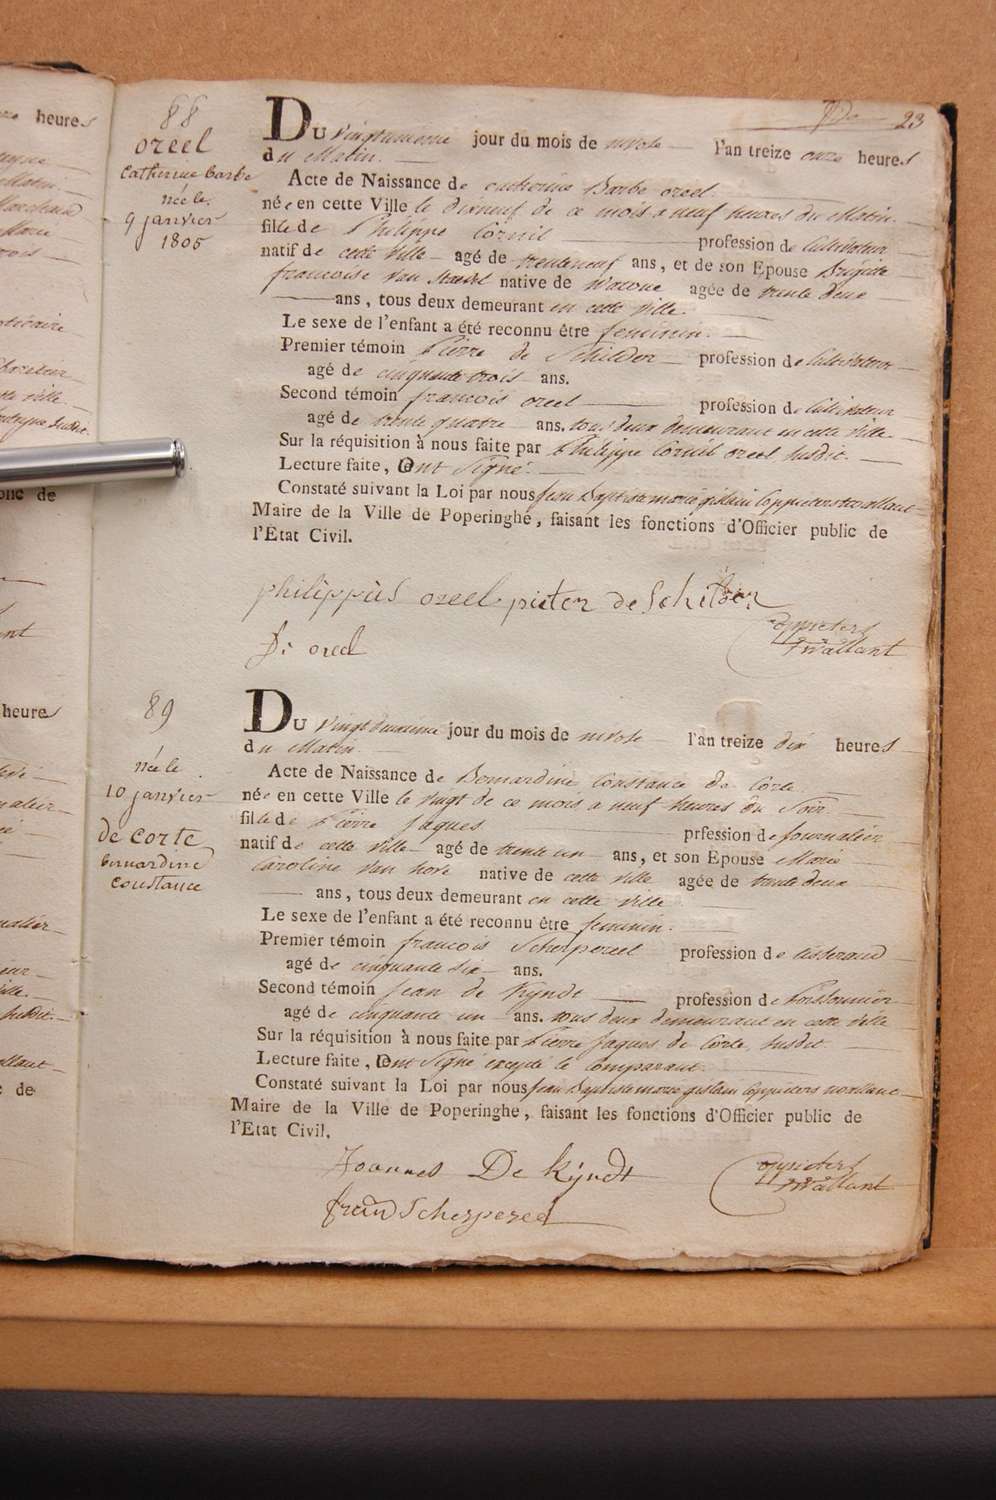 23
88
oreel
Catherine barbe
née le
9 janvier
1805
Du vingtunieme jour du mois de nivose l'an treize onze heures
du Matin.
Acte de Naissance de Catherine Barbe oreel
née en cette Ville le dixneuf de ce mois a neuf heures du Matin
fille de Philippe Cornil profession de Cultivateur
natif de cette ville agé de trenteneuf ans, et de son Epouse Brigitte
francoise van native de Watoue agée de trente deux
ans, tous deux demeurant en cette ville.
Le sexe de l'enfant a été reconnu être feminin.
Premier témoin Pierre de Schilder profession de Cultivateur
agé de cinquante trois ans.
Second témoin francois oreel profession de Cultivateur
agé de trente quatre ans. tous deux demeurant en cette ville
Sur la réquisition à nous faite par Philippe Cornil oreel susdit.
Lecture faite, Ont Signé.
Constaté suivant la Loi par nous Jean Baptiste marie gislain Coppieters twallant
Maire de la Ville de Poperinghe, faisant les fonctions d'Officier public de
l'Etat Civil.
philippus oreel pieter de Schilder
oreel
Coppieters
twallant
89
née le
10 janvier
de corte
bernardine
constance
Du vingtdeuxieme jour du mois de nivose l'an treize dix heures
du Matin
Acte de Naissance de Bernardine Constance de Corte
née en cette Ville le vingt de ce mois a neuf heures du Soir
fille de Pierre Jaques prfession de journalier
natif de cette ville agé de trente un ans, et son Epouse Marie
Caroline van hove native de cette ville agée de trente deux
ans, tous deux demeurant en cette ville
Le sexe de l'enfant a été reconnu être feminin.
Premier témoin francois Scherpereel profession de tisserand
agé de cinquante six ans.
Second témoin Jean de Kyndt profession de Poissonnier
agé de cinquante un ans. tous deux demeurant en cette ville
Sur la réquisition à nous faite par Pierre Jaques de Corte susdit
Lecture faite, Ont Signé excepté le Comparant.
Constaté suivant la Loi par nous Jean Baptiste marie gislain Coppieters twallant
Maire de la Ville de Poperinghe, faisant les fonctions d'Officier public de
l'Etat Civil.
Joannes De Kijndt
Scherpereel
Coppieters
twallant